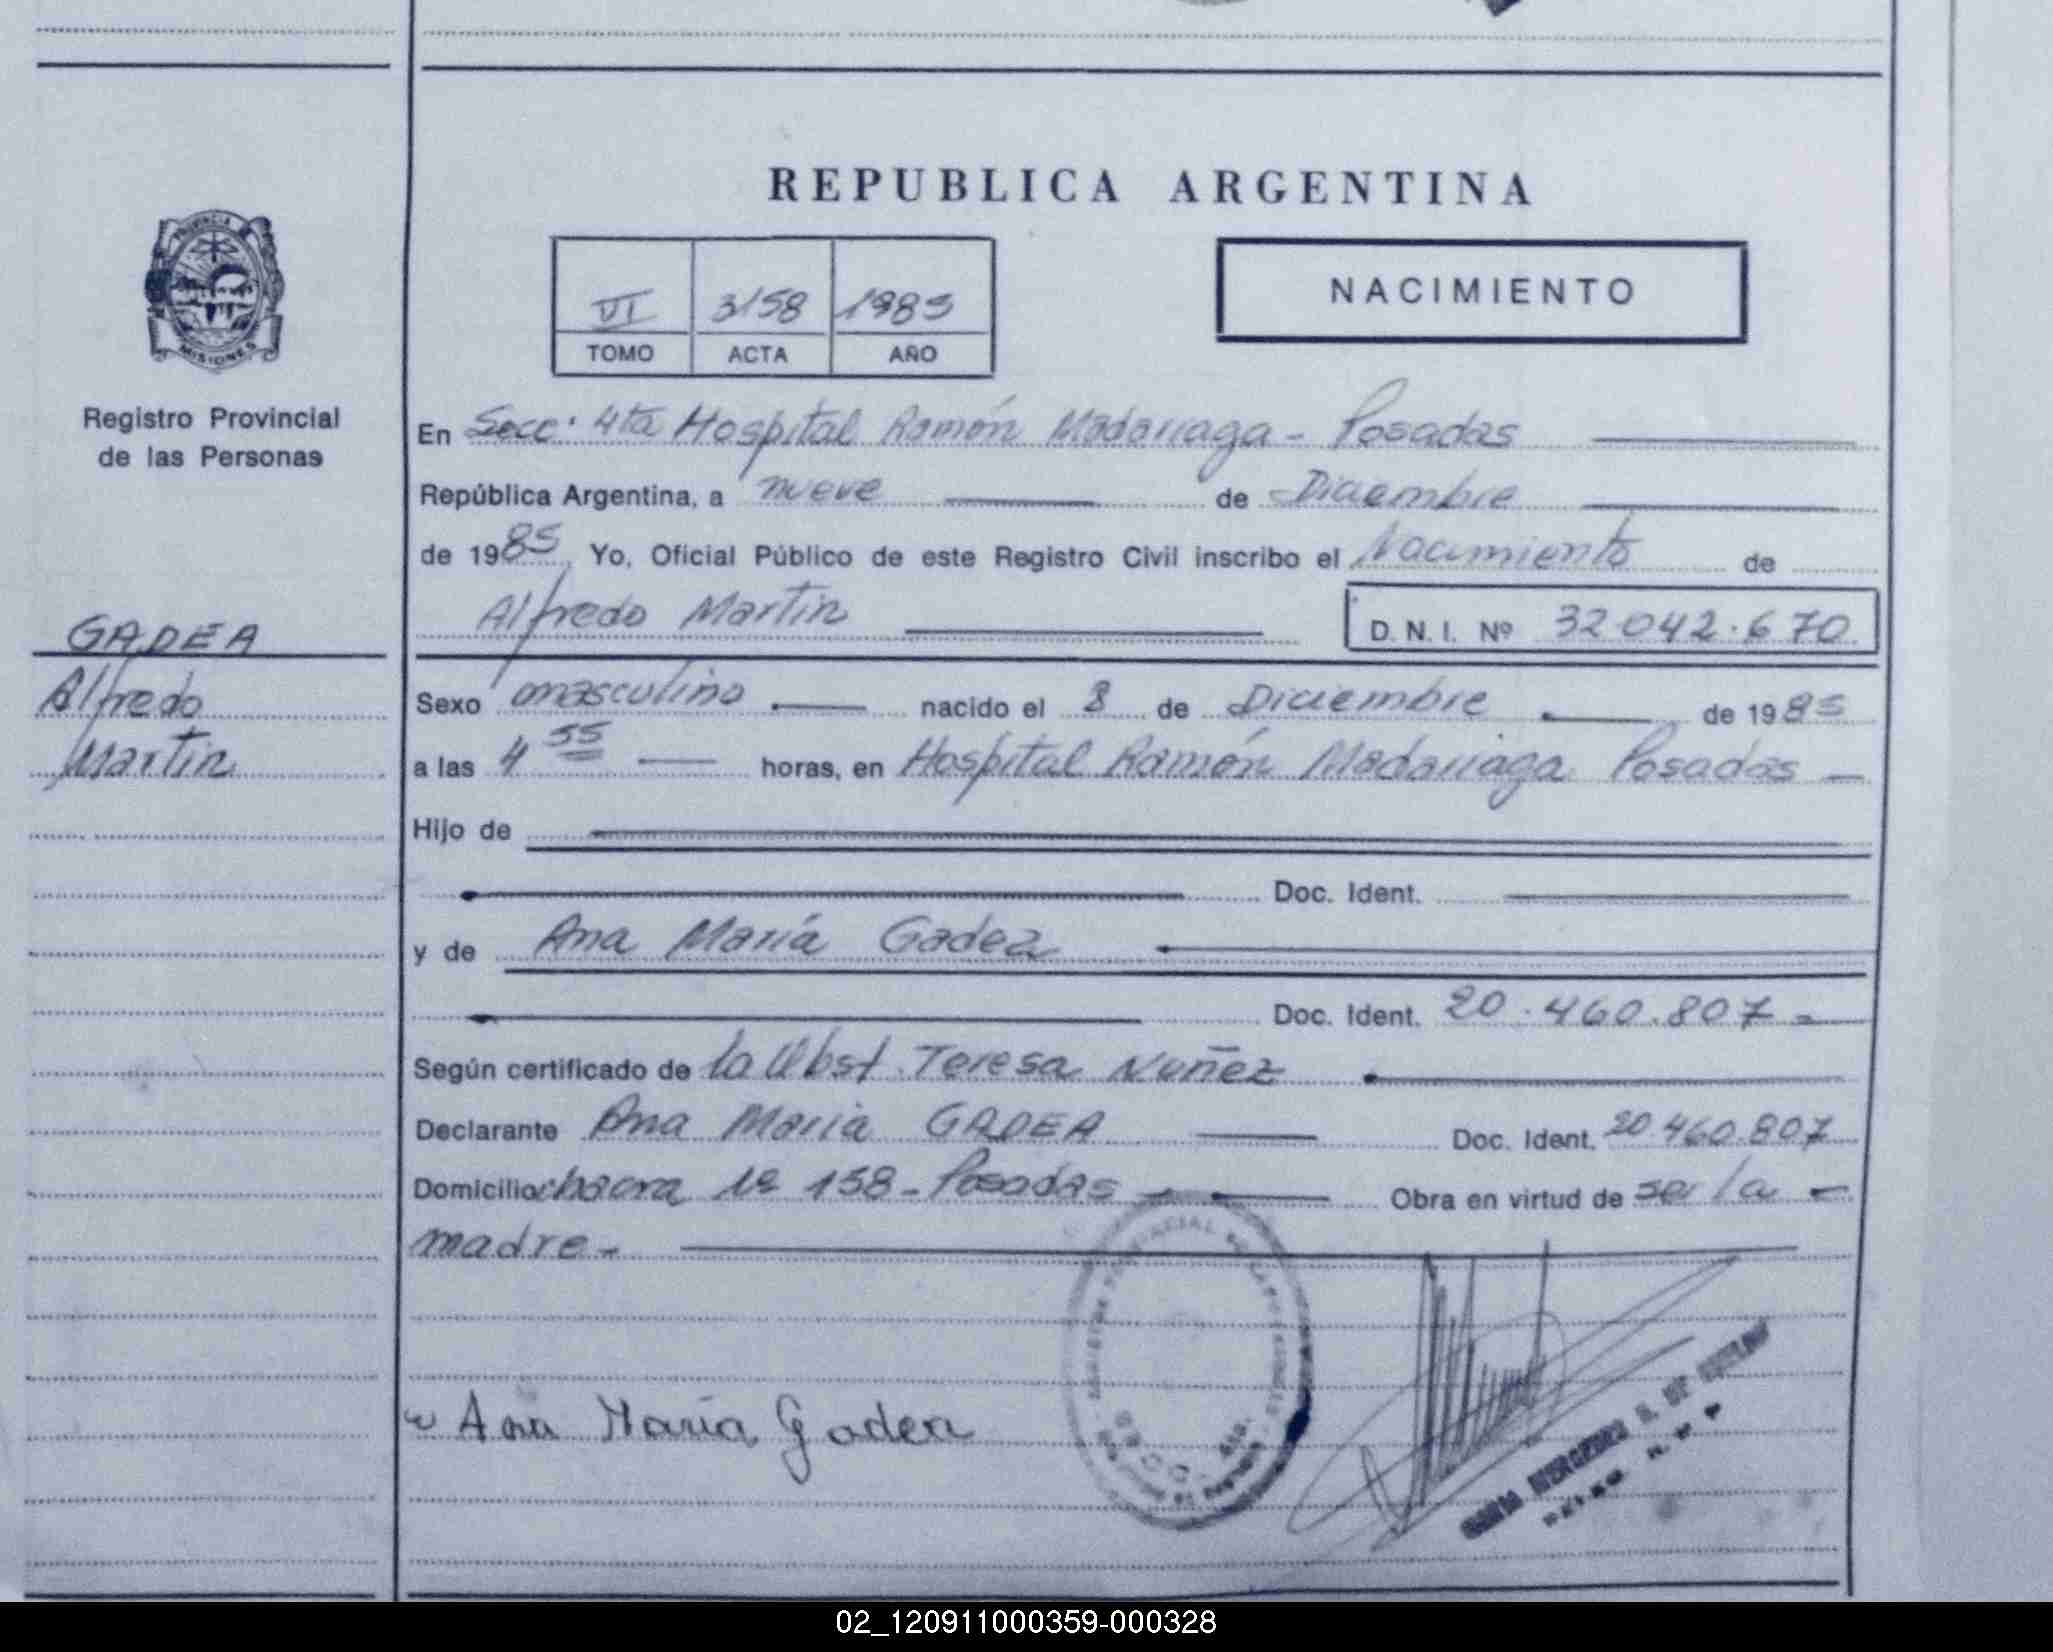 REPUBLICA ARGENTINA
PROVINCIA DE
MISIONES
Registro Provincial
de las Personas
VI 3158 1985
TOMO ACTA AÑO
NACIMIENTO
En Secc. 4ta Hospital Ramón Madariaga - Posadas
República Argentina, a nueve de Diciembre
de 1985, Yo, Oficial Público de este Registro Civil inscribo el Nacimiento de
Alfredo Martin D. N. I. Nº 32.042.670
GADEA
Alfredo
Martin
Sexo masculino nacido el 8 de Diciembre de 1985
a las 4 55 horas, en Hospital Ramón Madariaga Posadas -
Hijo de
Doc. Ident.
y de Ana María Gadea
Doc. Ident. 20.460.807 -
Según certificado de la Obst. Teresa Nuñez
Declarante Ana Maria GADEA Doc. Ident. 20.460.807
Domicilio chacra Nº 158 - Posadas Obra en virtud de ser la
madre -
Ana María Gadea
SECC. 4ta.
02_120911000359-000328